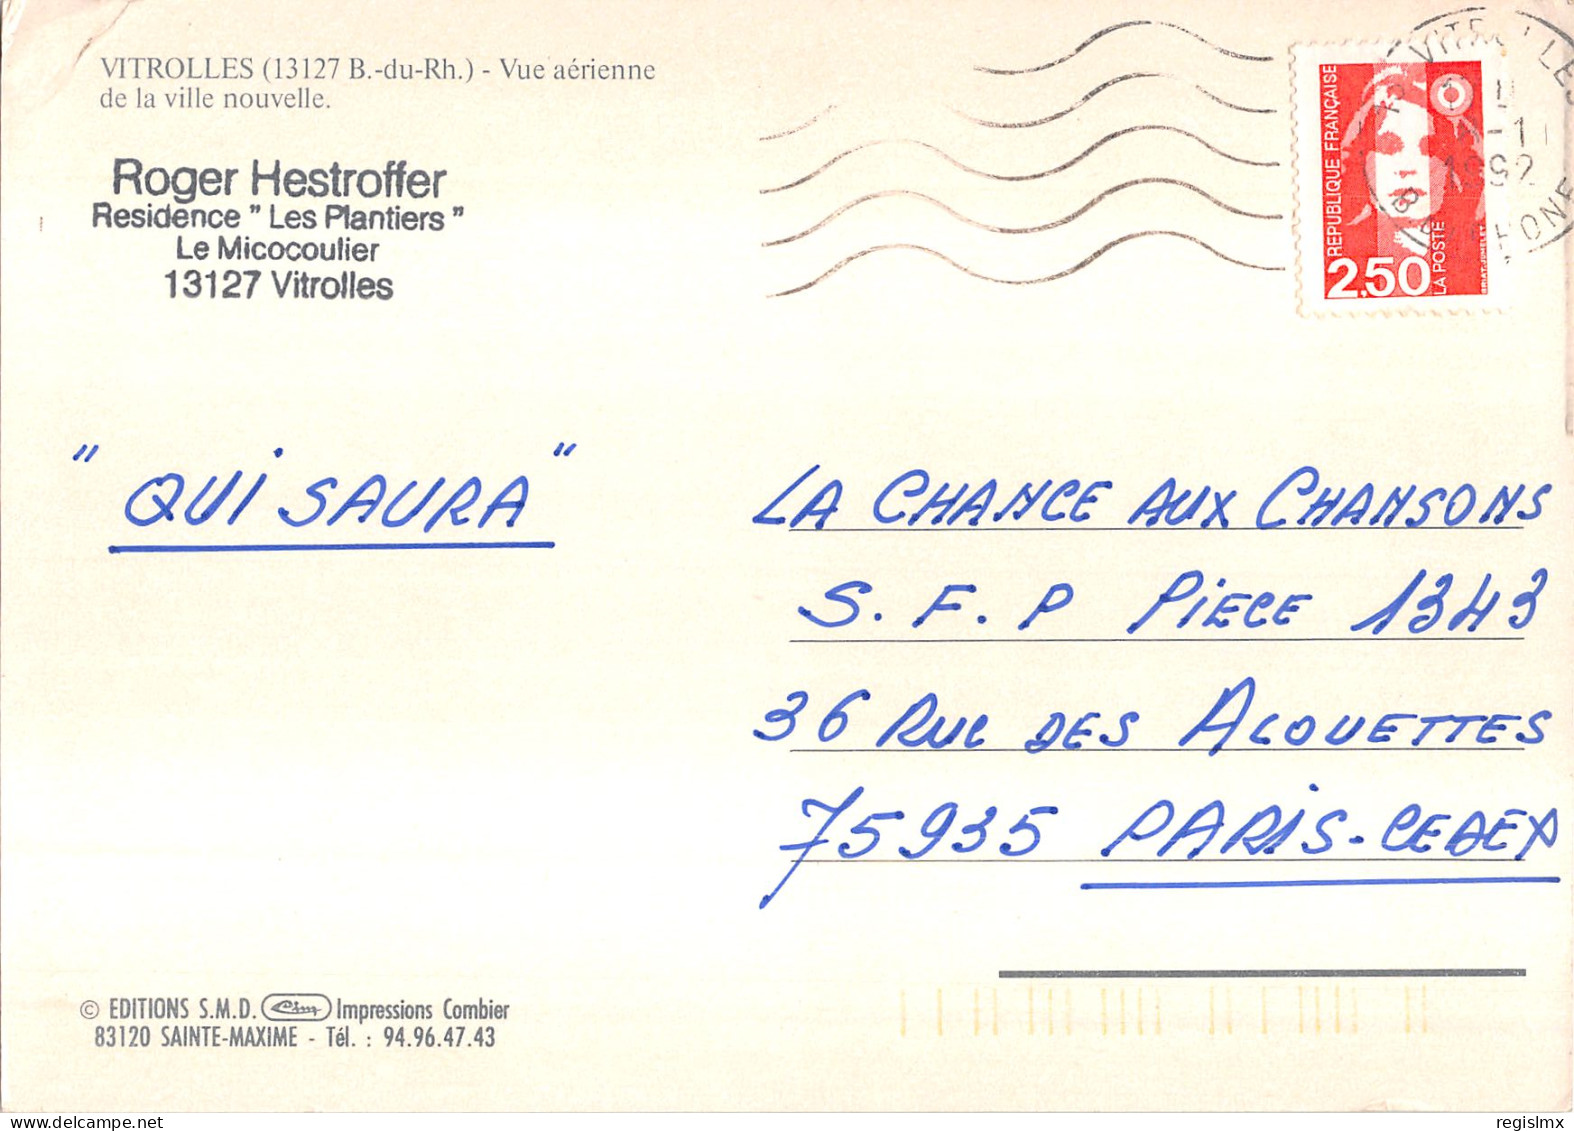 VITROLLES (13127 B.-du-Rh.) - Vue aérienne
de la ville nouvelle.
Roger Hestroffer
Residence " Les Plantiers "
Le Micocoulier
13127 Vitrolles
VITROLLES
1992
RHONE
REPUBLIQUE FRANÇAISE
2,50
LA POSTE
BRIAT-JUMELET
" QUI SAURA "
LA CHANCE AUX CHANSONS
S. F. P PIECE 1343
36 RUE DES ALOUETTES
75935 PARIS-CEDEX
© EDITIONS S.M.D. Cim Impressions Combier
83120 SAINTE-MAXIME - Tél. : 94.96.47.43
delcampe.net
regislmx